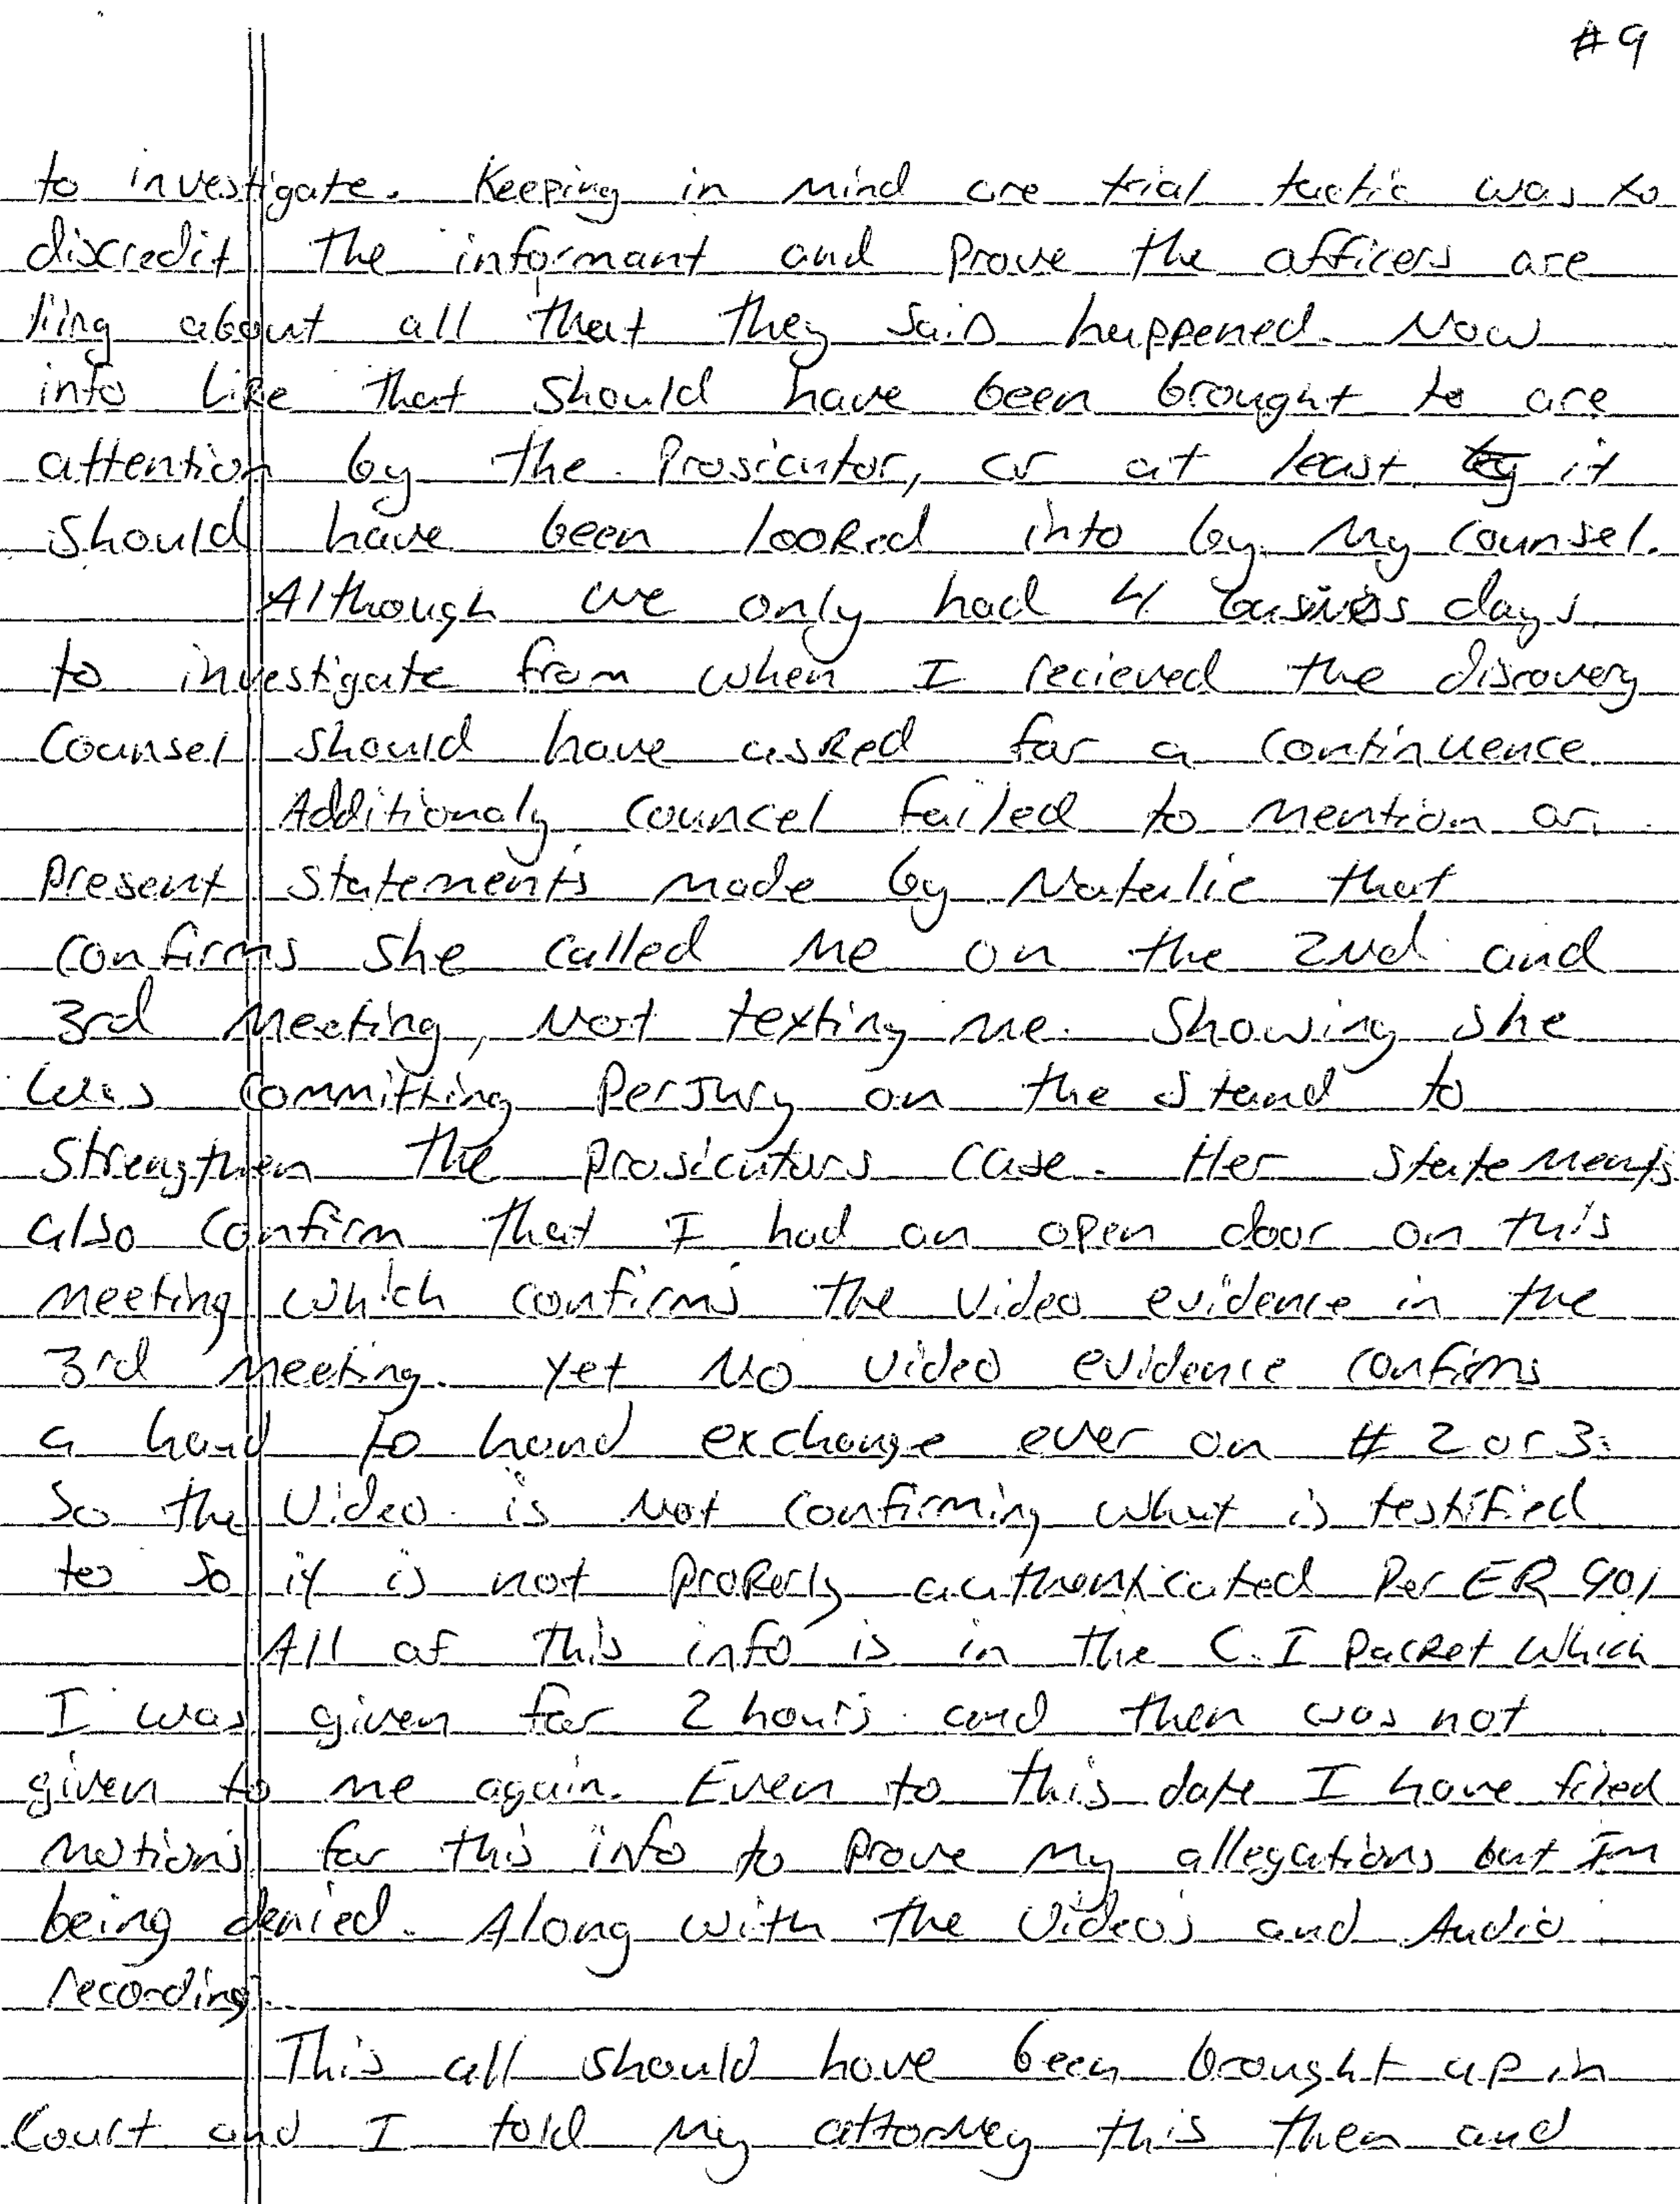 #9
to investigate. Keeping in mind are trial tactic was to
discredit the informant and prove the officers are
liing about all that they said happened. Now
info Like that should have been brought to are
attention by the Prosicutor, or at least by it
should have been looked into by my counsel.
Although we only had 4 business days
to investigate from when I recieved the discovery
Counsel should have asked for a continuence
Additionaly councel failed to mention or
present statements made by Natalie that
confirms she called me on the 2nd and
3rd meeting, Not texting me. Showing she
was committing perjury on the stand to
strengthen the prosicutors case. Her statements
also confirm that I had an open door on this
meeting which confirms the video evidence in the
3rd meeting. yet No video evidence confirms
a hand to hand exchange ever on # 2 or 3.
So the video is Not confirming what is testified
to so it is not properly authenticated Per ER 901
All of this info is in the C.I packet which
I was given for 2 hours and then was not
given to me again. Even to this date I have filed
motions for this info to prove my allegations but Im
being denied. Along with the video's and Audio
recording.
This all should have been brought up in
Court and I told my attorney this then and